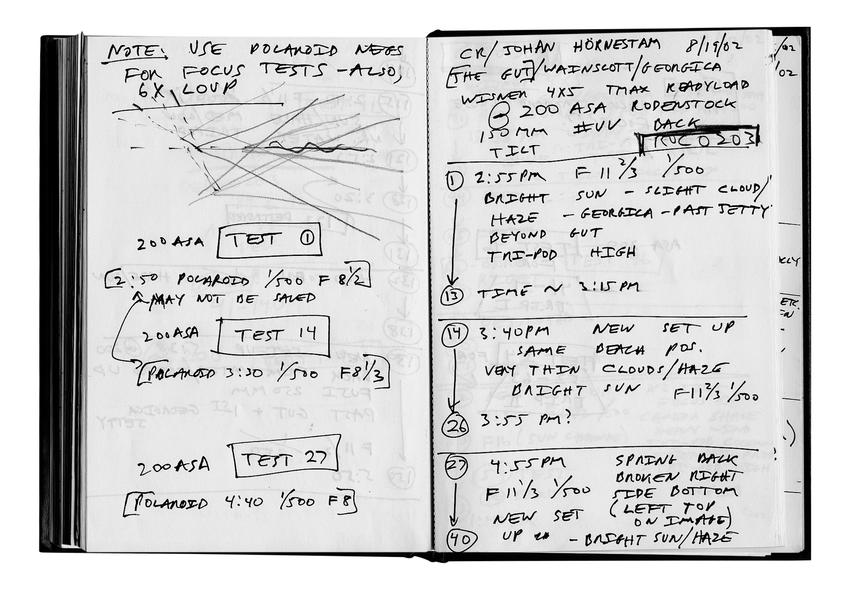 NOTE: USE POLAROID NEGS
FOR FOCUS TESTS - ALSO,
6X LOUP
200 ASA TEST 1
[2:50 POLAROID 1/500 F 8 1/2]
MAY NOT BE SAVED
200 ASA TEST 14
[POLAROID 3:30 1/500 F8 1/3]
200 ASA TEST 27
[POLAROID 4:40 1/500 F8]
CR/ JOHAN HÖRNESTAM 8/19/02
[THE GUT]/WAINSCOTT/GEORGICA
WISNER 4X5 TMAX READYLOAD
@ 200 ASA RODENSTOCK
150MM #UV BACK
TILT
1 2:55PM F 11 2/3 1/500
BRIGHT SUN - SLIGHT CLOUD/
HAZE - GEORGICA - PAST JETTY
BEYOND GUT
TRI-POD HIGH
13 TIME ~ 3:15PM
14 3:40PM NEW SET UP
SAME BEACH POS.
VERY THIN CLOUDS/HAZE
BRIGHT SUN F11 2/3 1/500
26 3:55 PM?
27 4:55PM SPRING BACK
BROKEN RIGHT
F 11 1/3 1/500 SIDE BOTTOM
(LEFT TOP
NEW SET ON IMAGE)
40 UP - BRIGHT SUN/HAZE